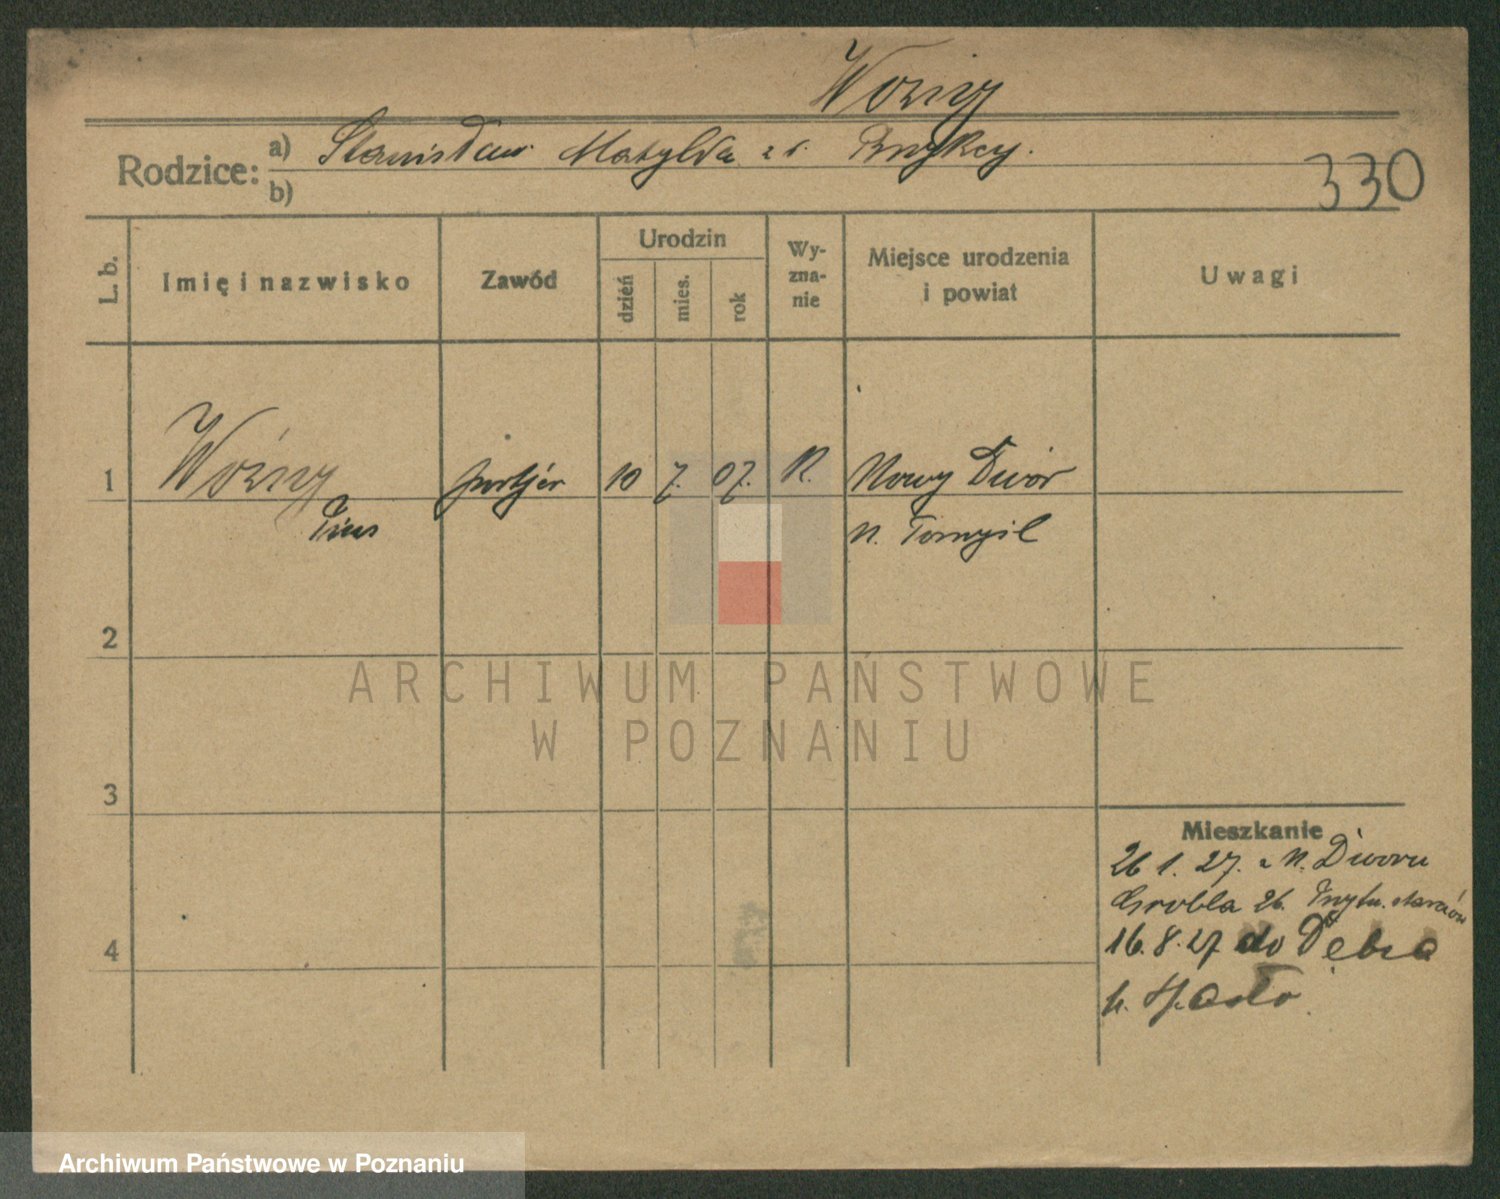 Woźny
Rodzice: a) Stanisław Matylda z d.
b)
330
L. b.
Imię i nazwisko
Zawód
Urodzin
dzień
mies.
rok
Wy-
zna-
nie
Miejsce urodzenia
i powiat
Uwagi
1 Woźny portjer 10 7. 07. R. Nowy Dwór
Pius N. Tomyśl
2
3
4
Mieszkanie
26 1. 27. z N. Dworu
Grobla 26.
16. 8. 27 do
ARCHIWUM PAŃSTWOWE
W POZNANIU
Archiwum Państwowe w Poznaniu